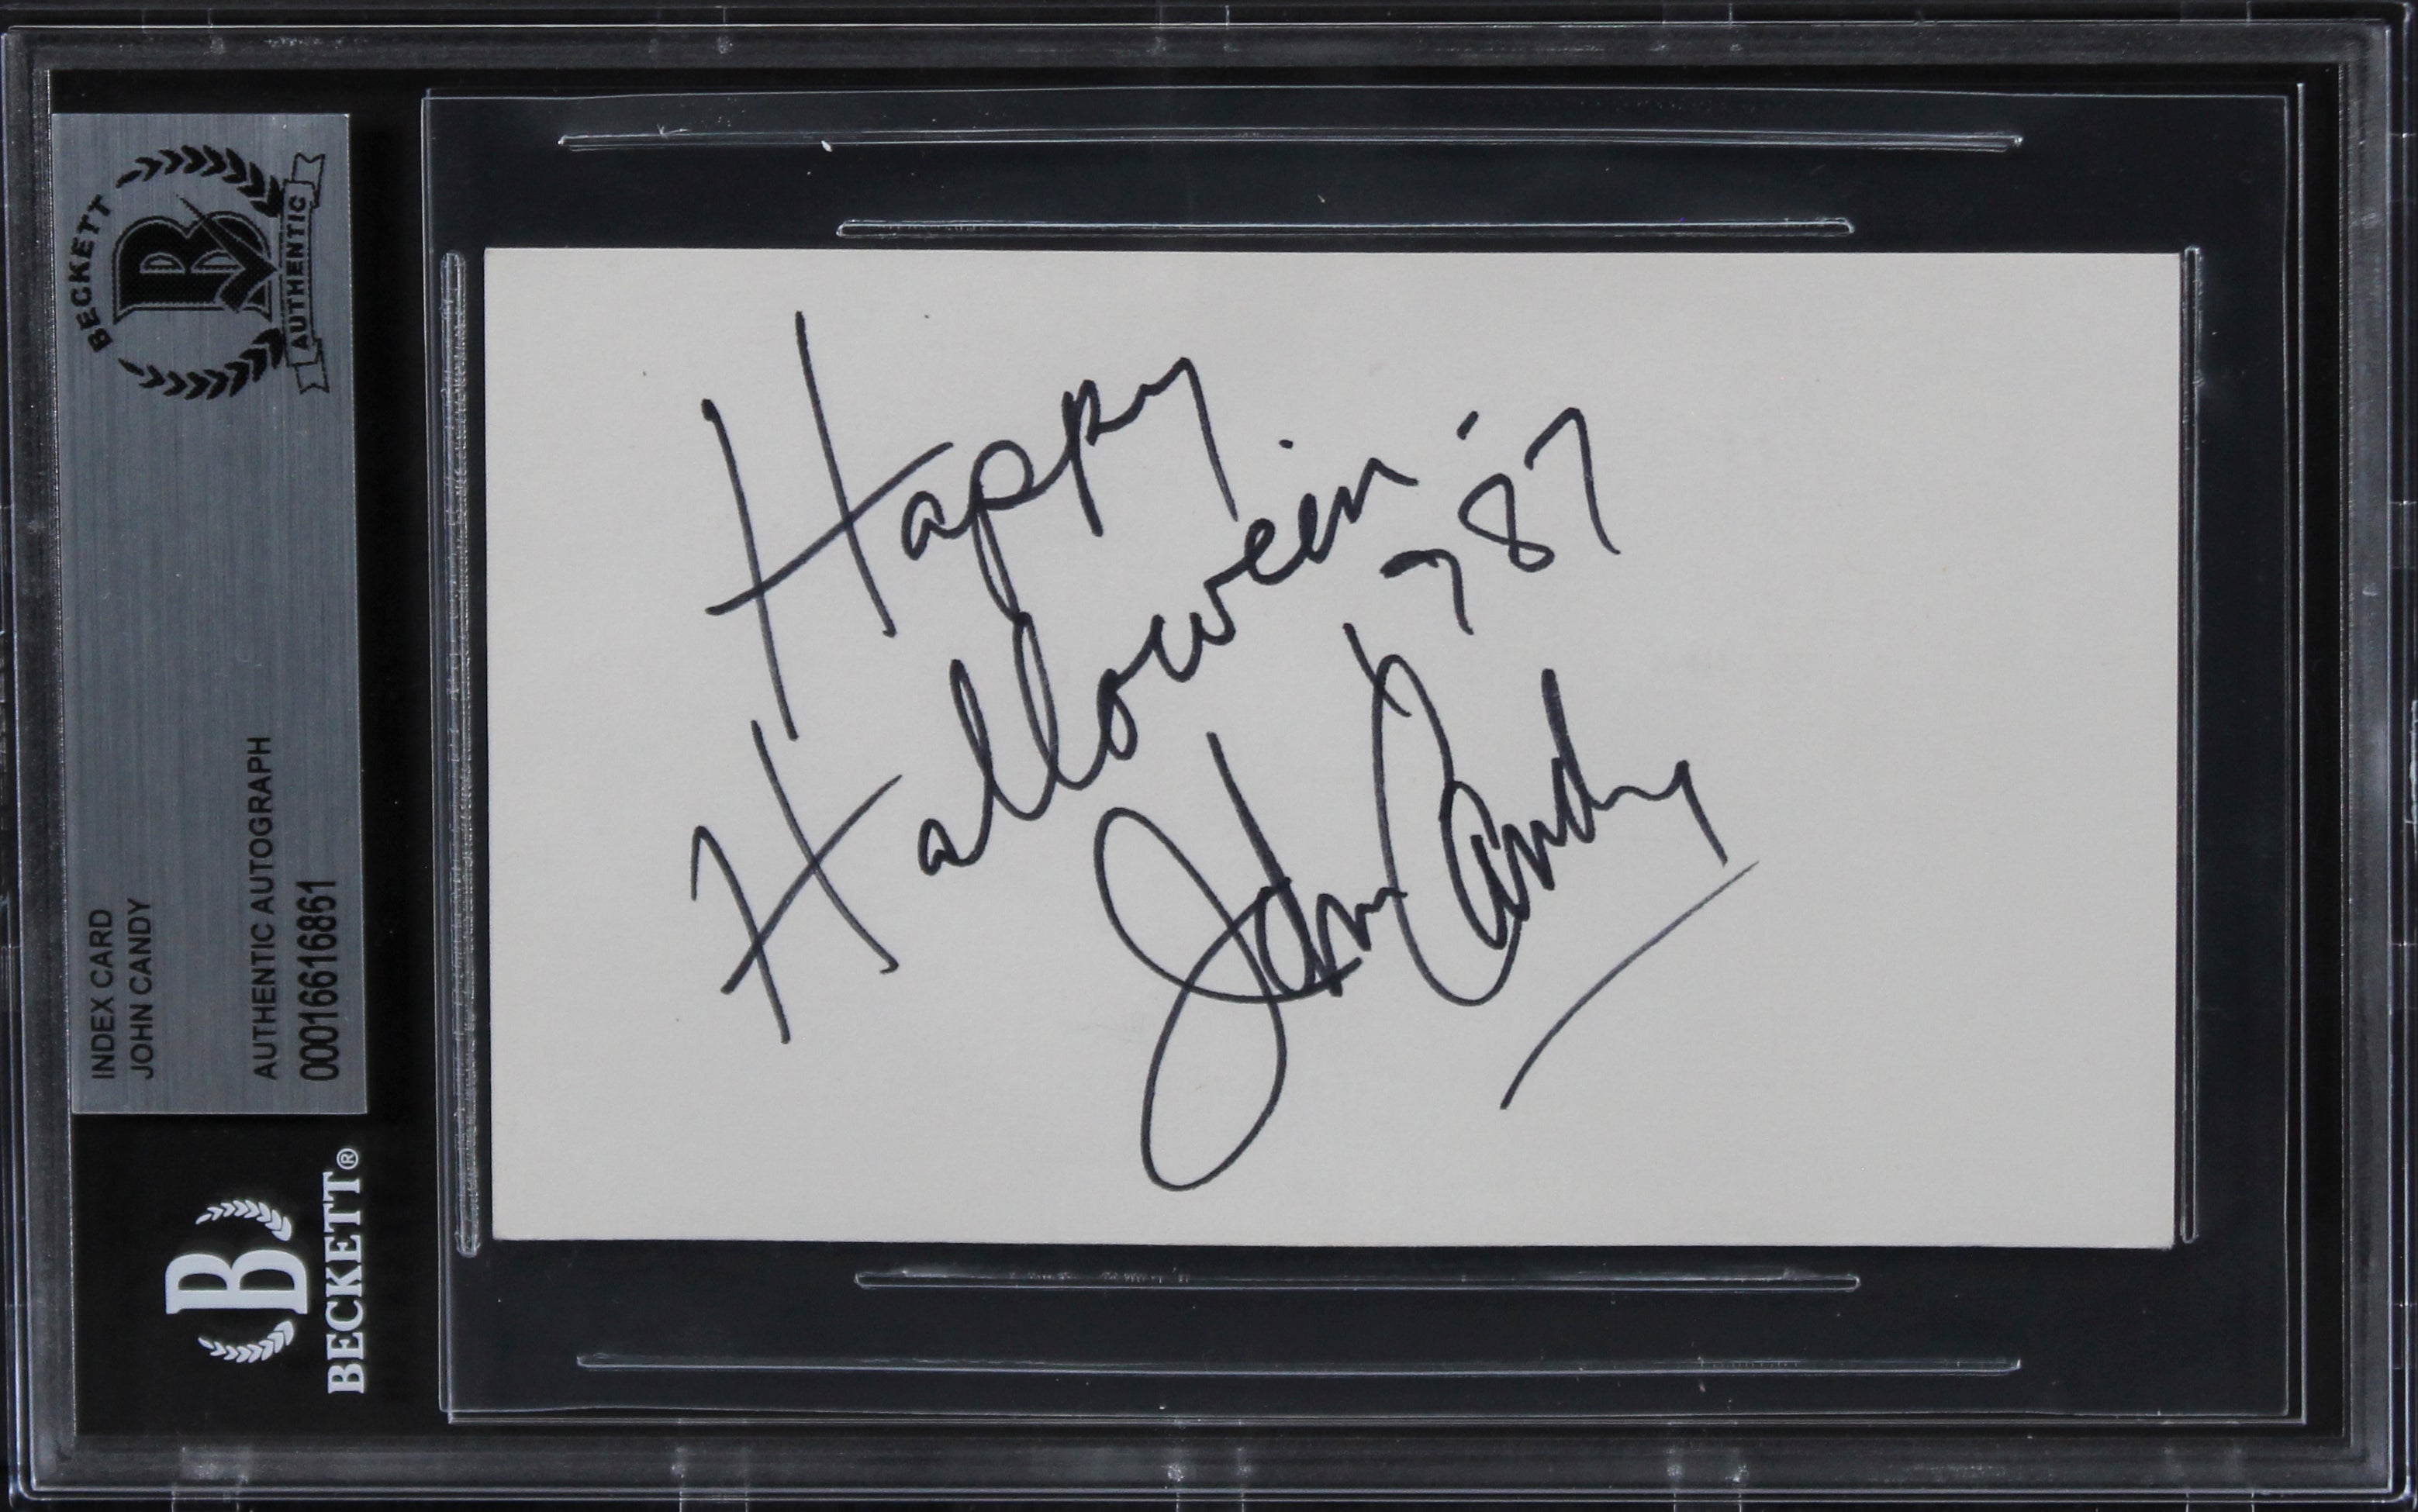 BECKETT
B
AUTHENTIC
INDEX CARD
JOHN CANDY
AUTHENTIC AUTOGRAPH
00016616861
B
BECKETT®
Happy
Halloween
'87
John Candy